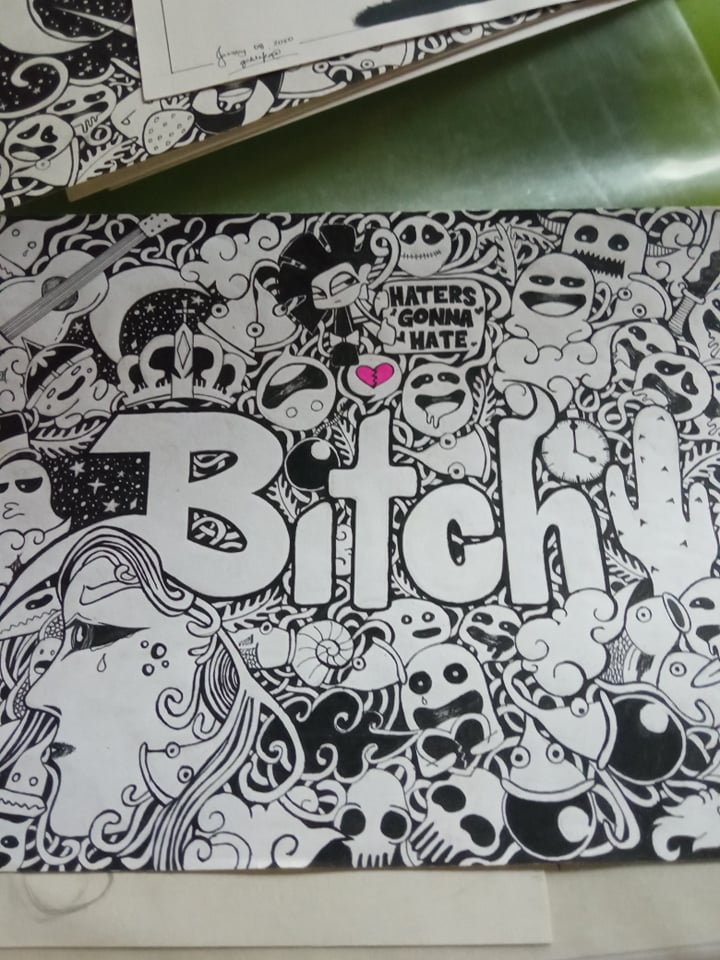 January 08. 2020
HATERS
GONNA
HATE.
Bitch